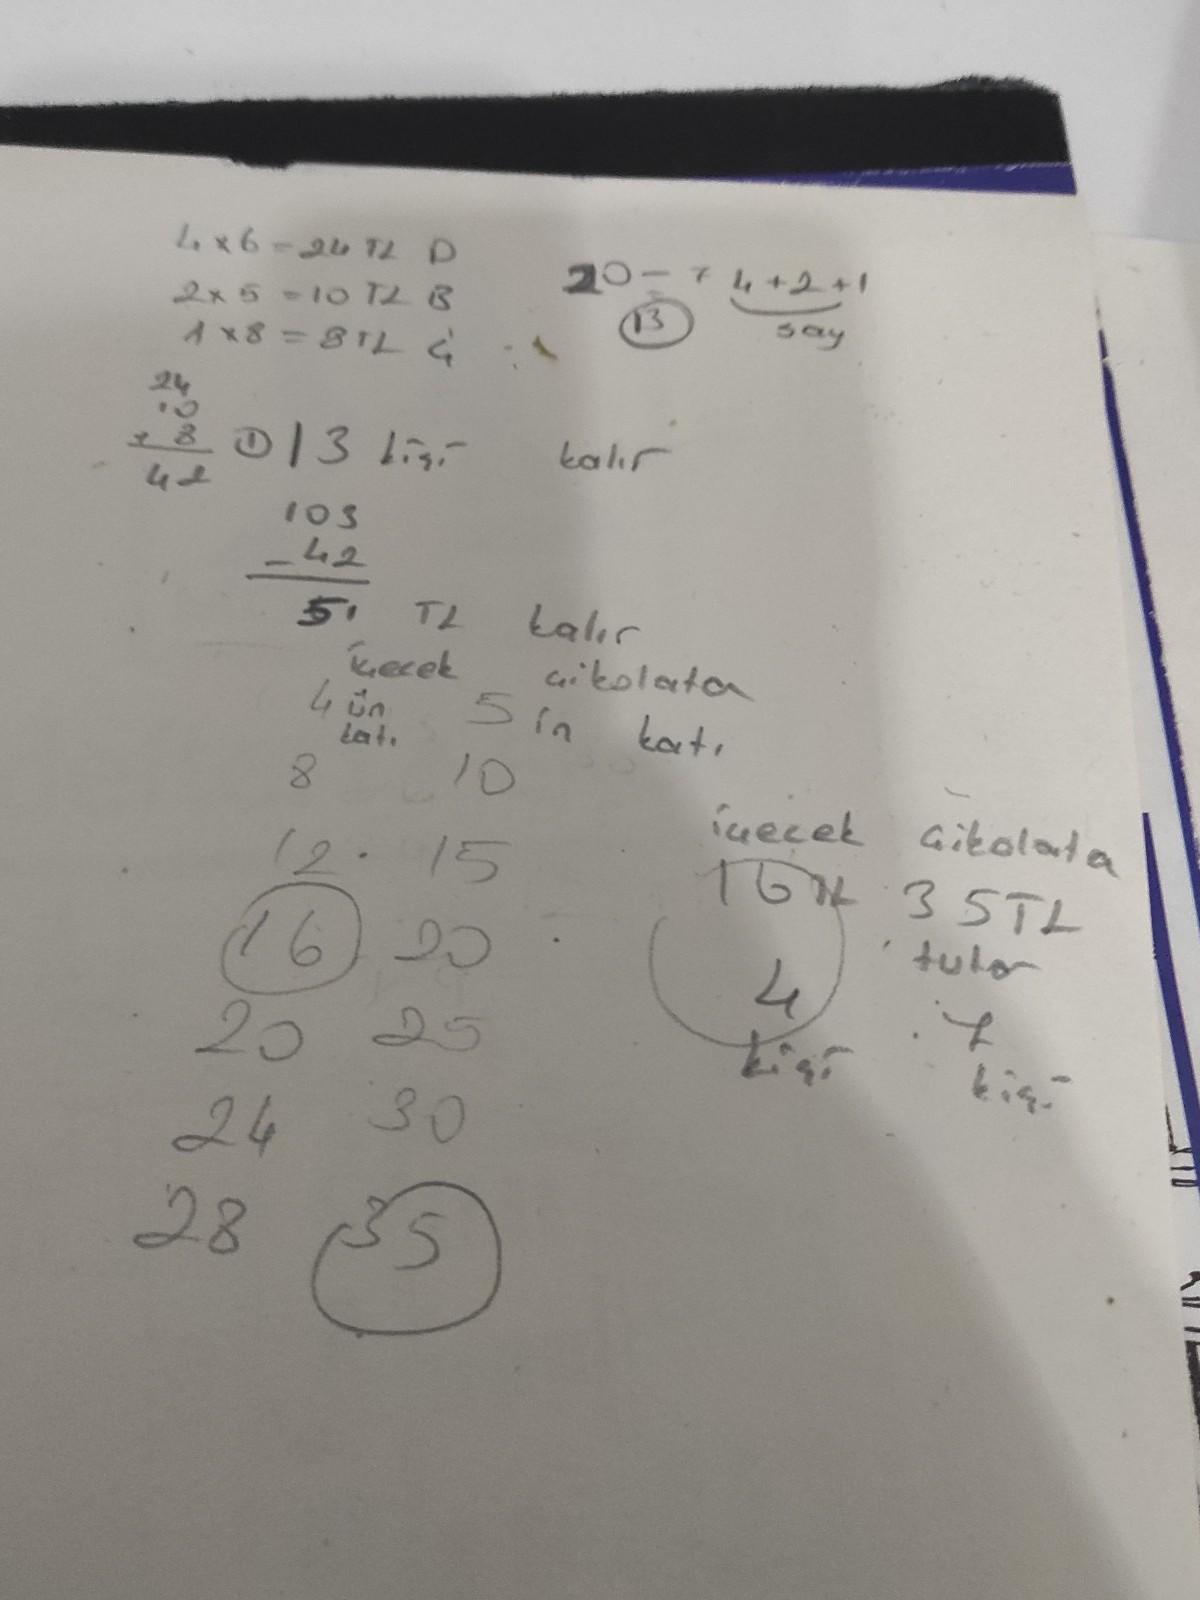 4 x 6 = 24 TL D
2 x 5 = 10 TL B
1 x 8 = 8 TL Ç
20 - 7 4+2+1
13 say
24
10
+ 8
42
① 13 kişi kalır
103
- 42
51 TL kalır
içecek çikolata
4 ün katı 5 in katı
8 10
12 15
16 20
20 25
24 30
28 35
içecek çikolata
16 TL 35 TL
tutar
4 7
kişi kişi